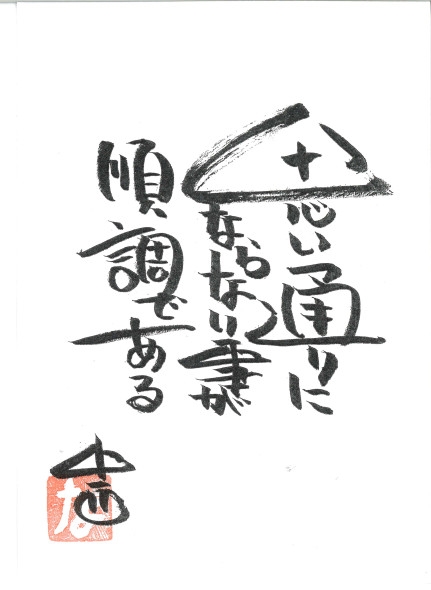 思い通りに
ならない事が
順調である
な